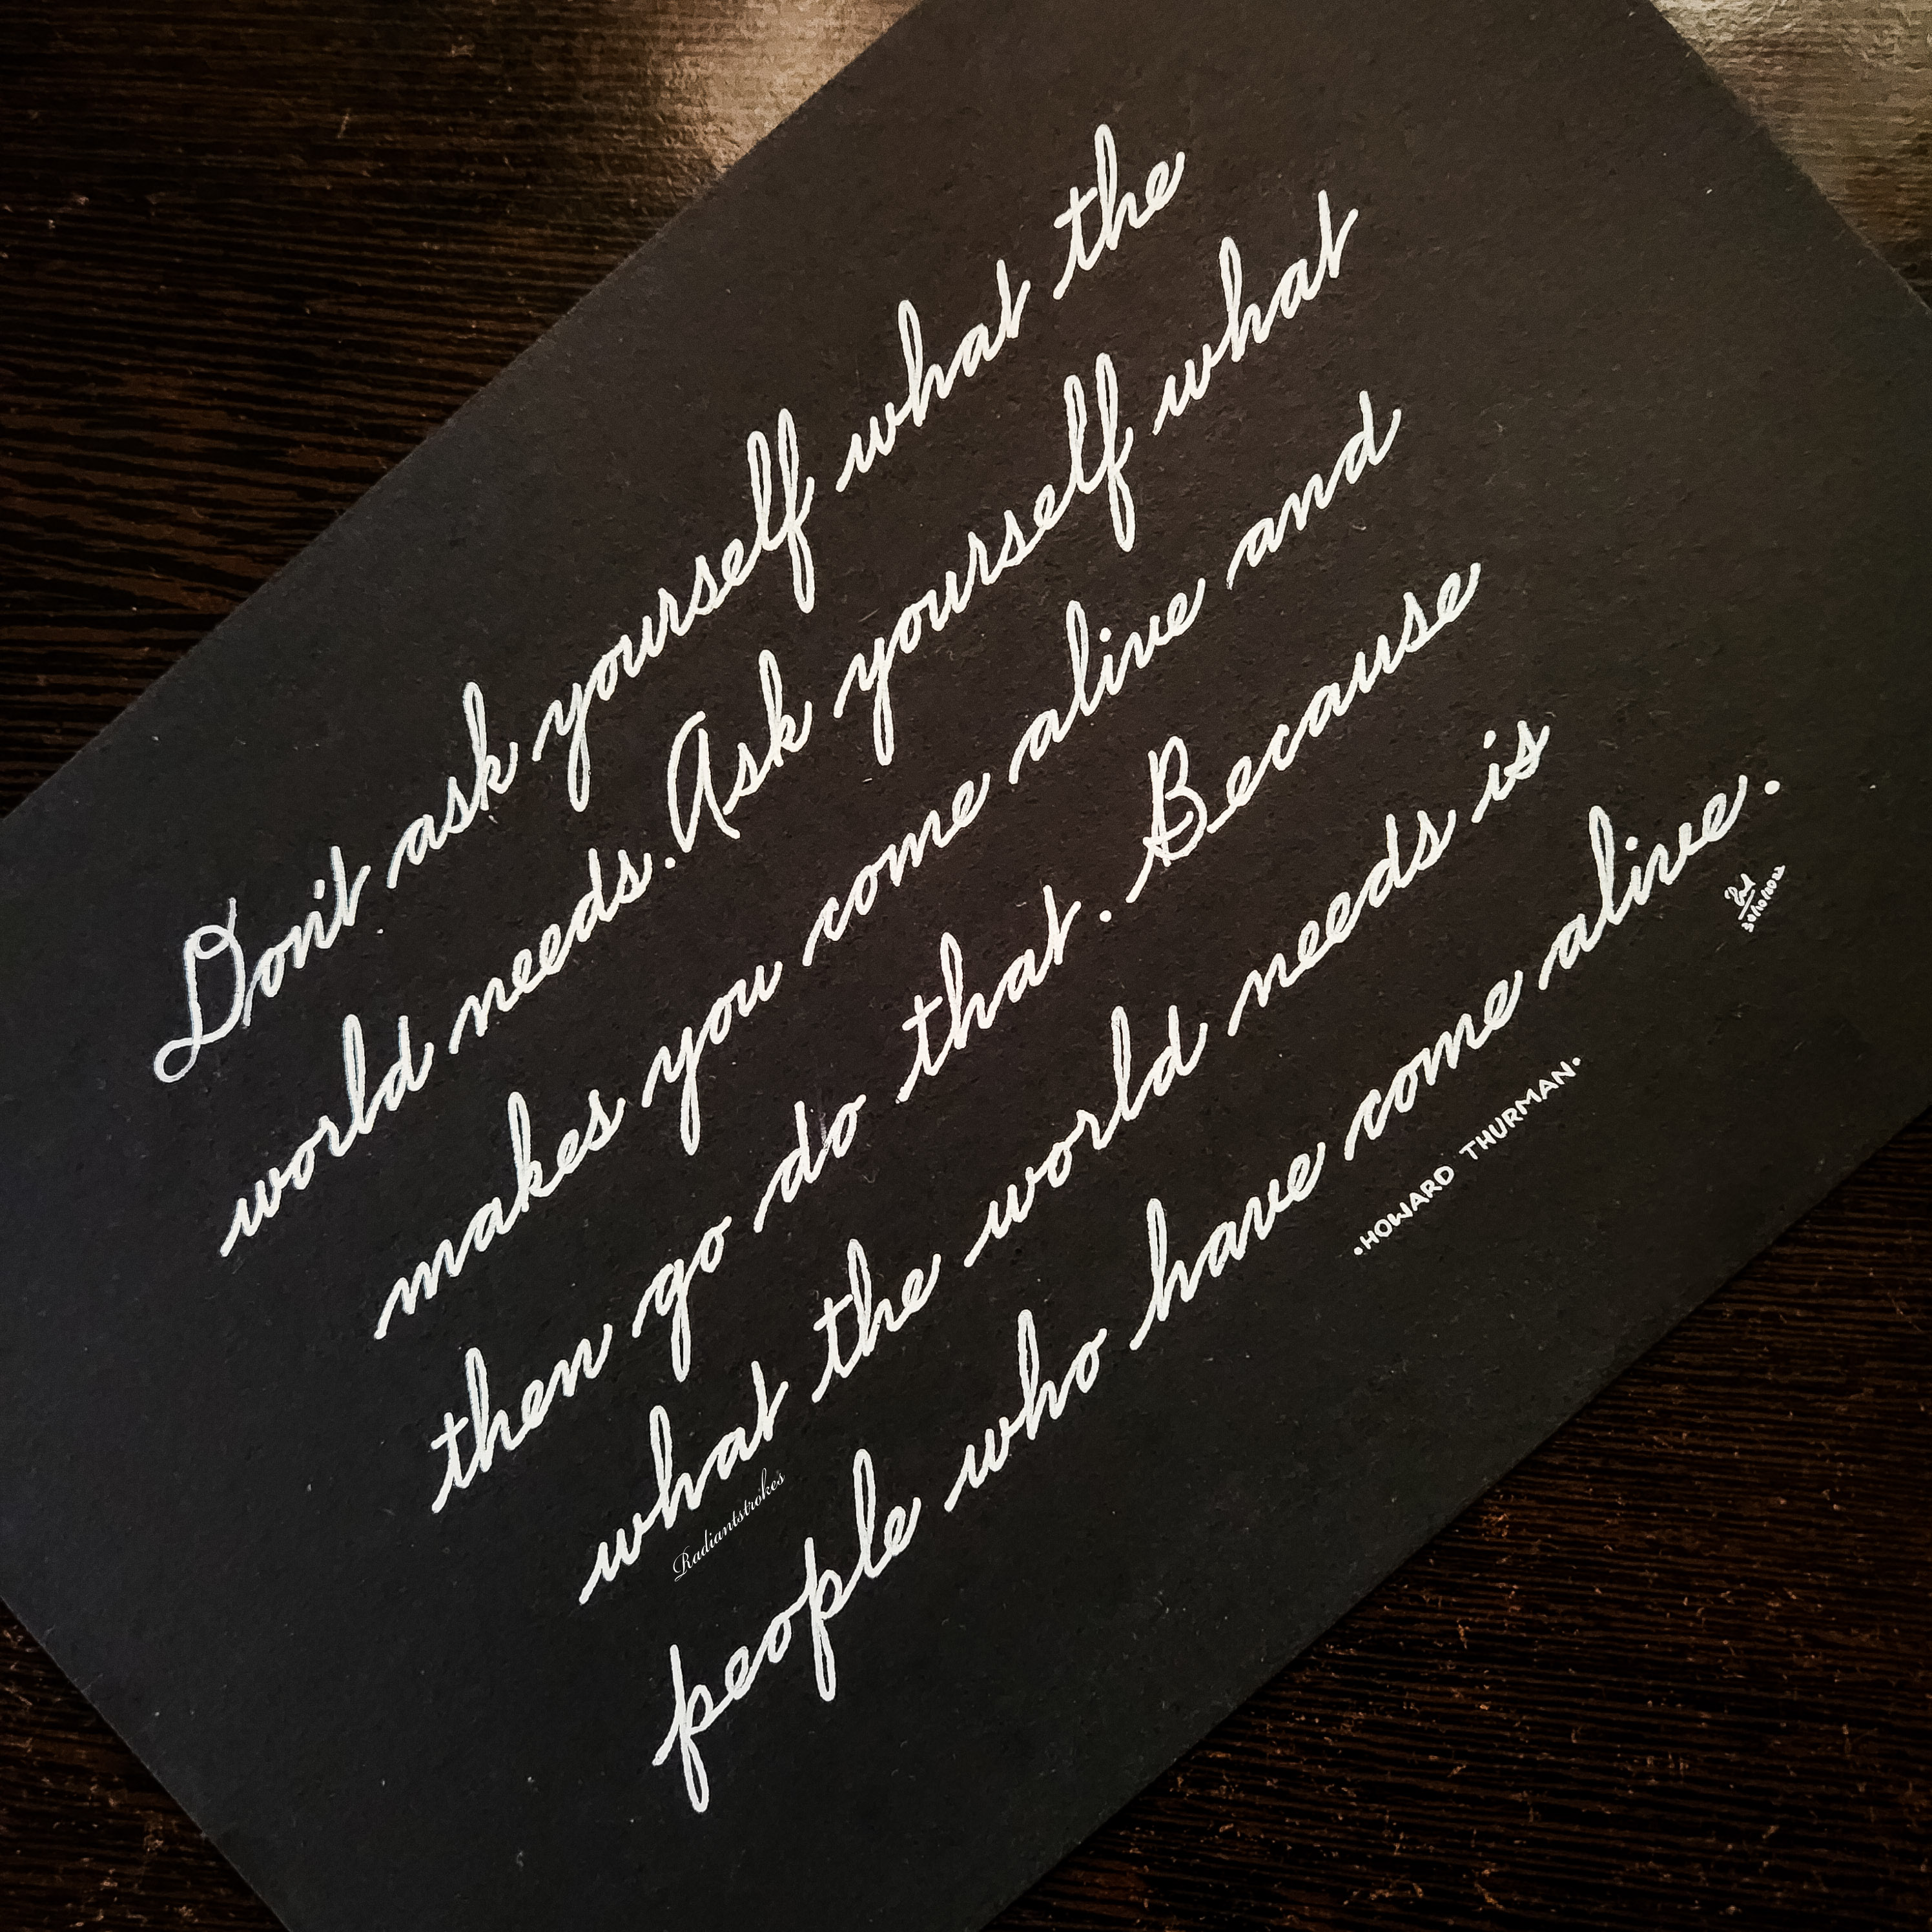 Don't ask yourself what the
world needs. Ask yourself what
makes you come alive and
then go do that. Because
what the world needs is
people who have come alive.
30/10/2022
.HOWARD THURMAN.
Radiantstrokes